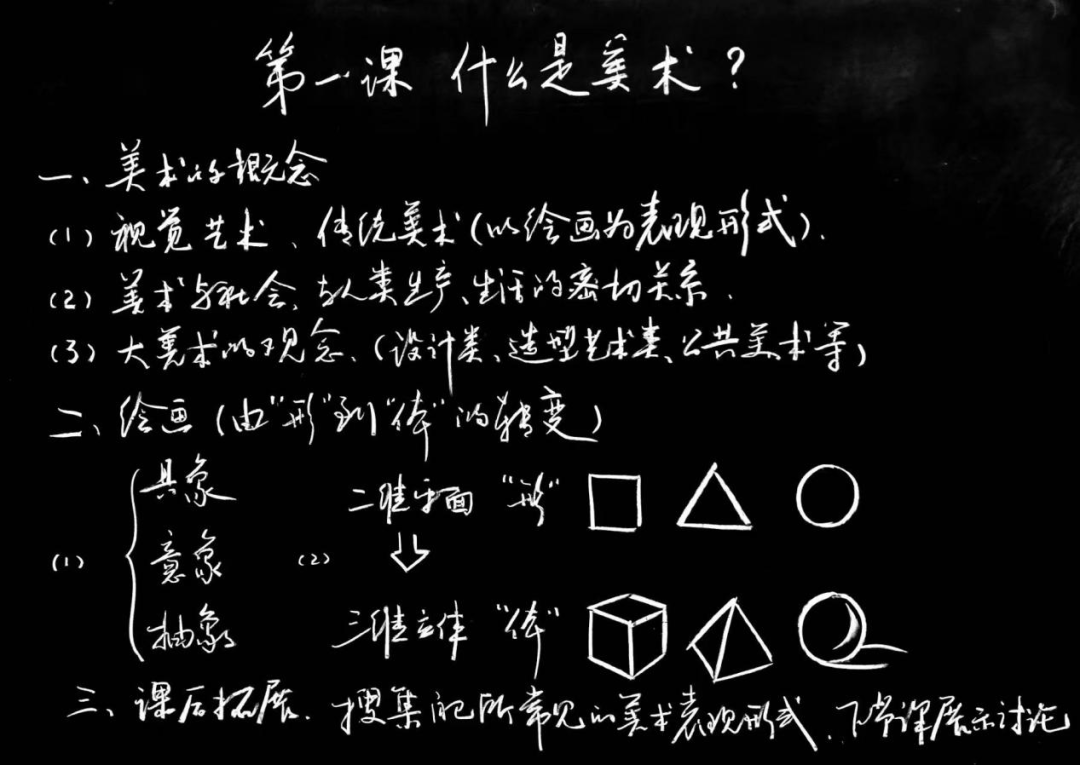 第一课 什么是美术？
一、美术的概念
（1）视觉艺术、传统美术（以绘画为表现形式）.
（2）美术与社会、与人类生产、生活的密切关系.
（3）大美术的观念、（设计类、造型艺术类、公共美术等）
二、绘画（由“形”到“体”的转变）
（1） 具象 意象 抽象
（2） 二维平面 “形”
三维立体 “体”
三、课后拓展. 搜集 所常见的美术表现形式、下堂课展示讨论